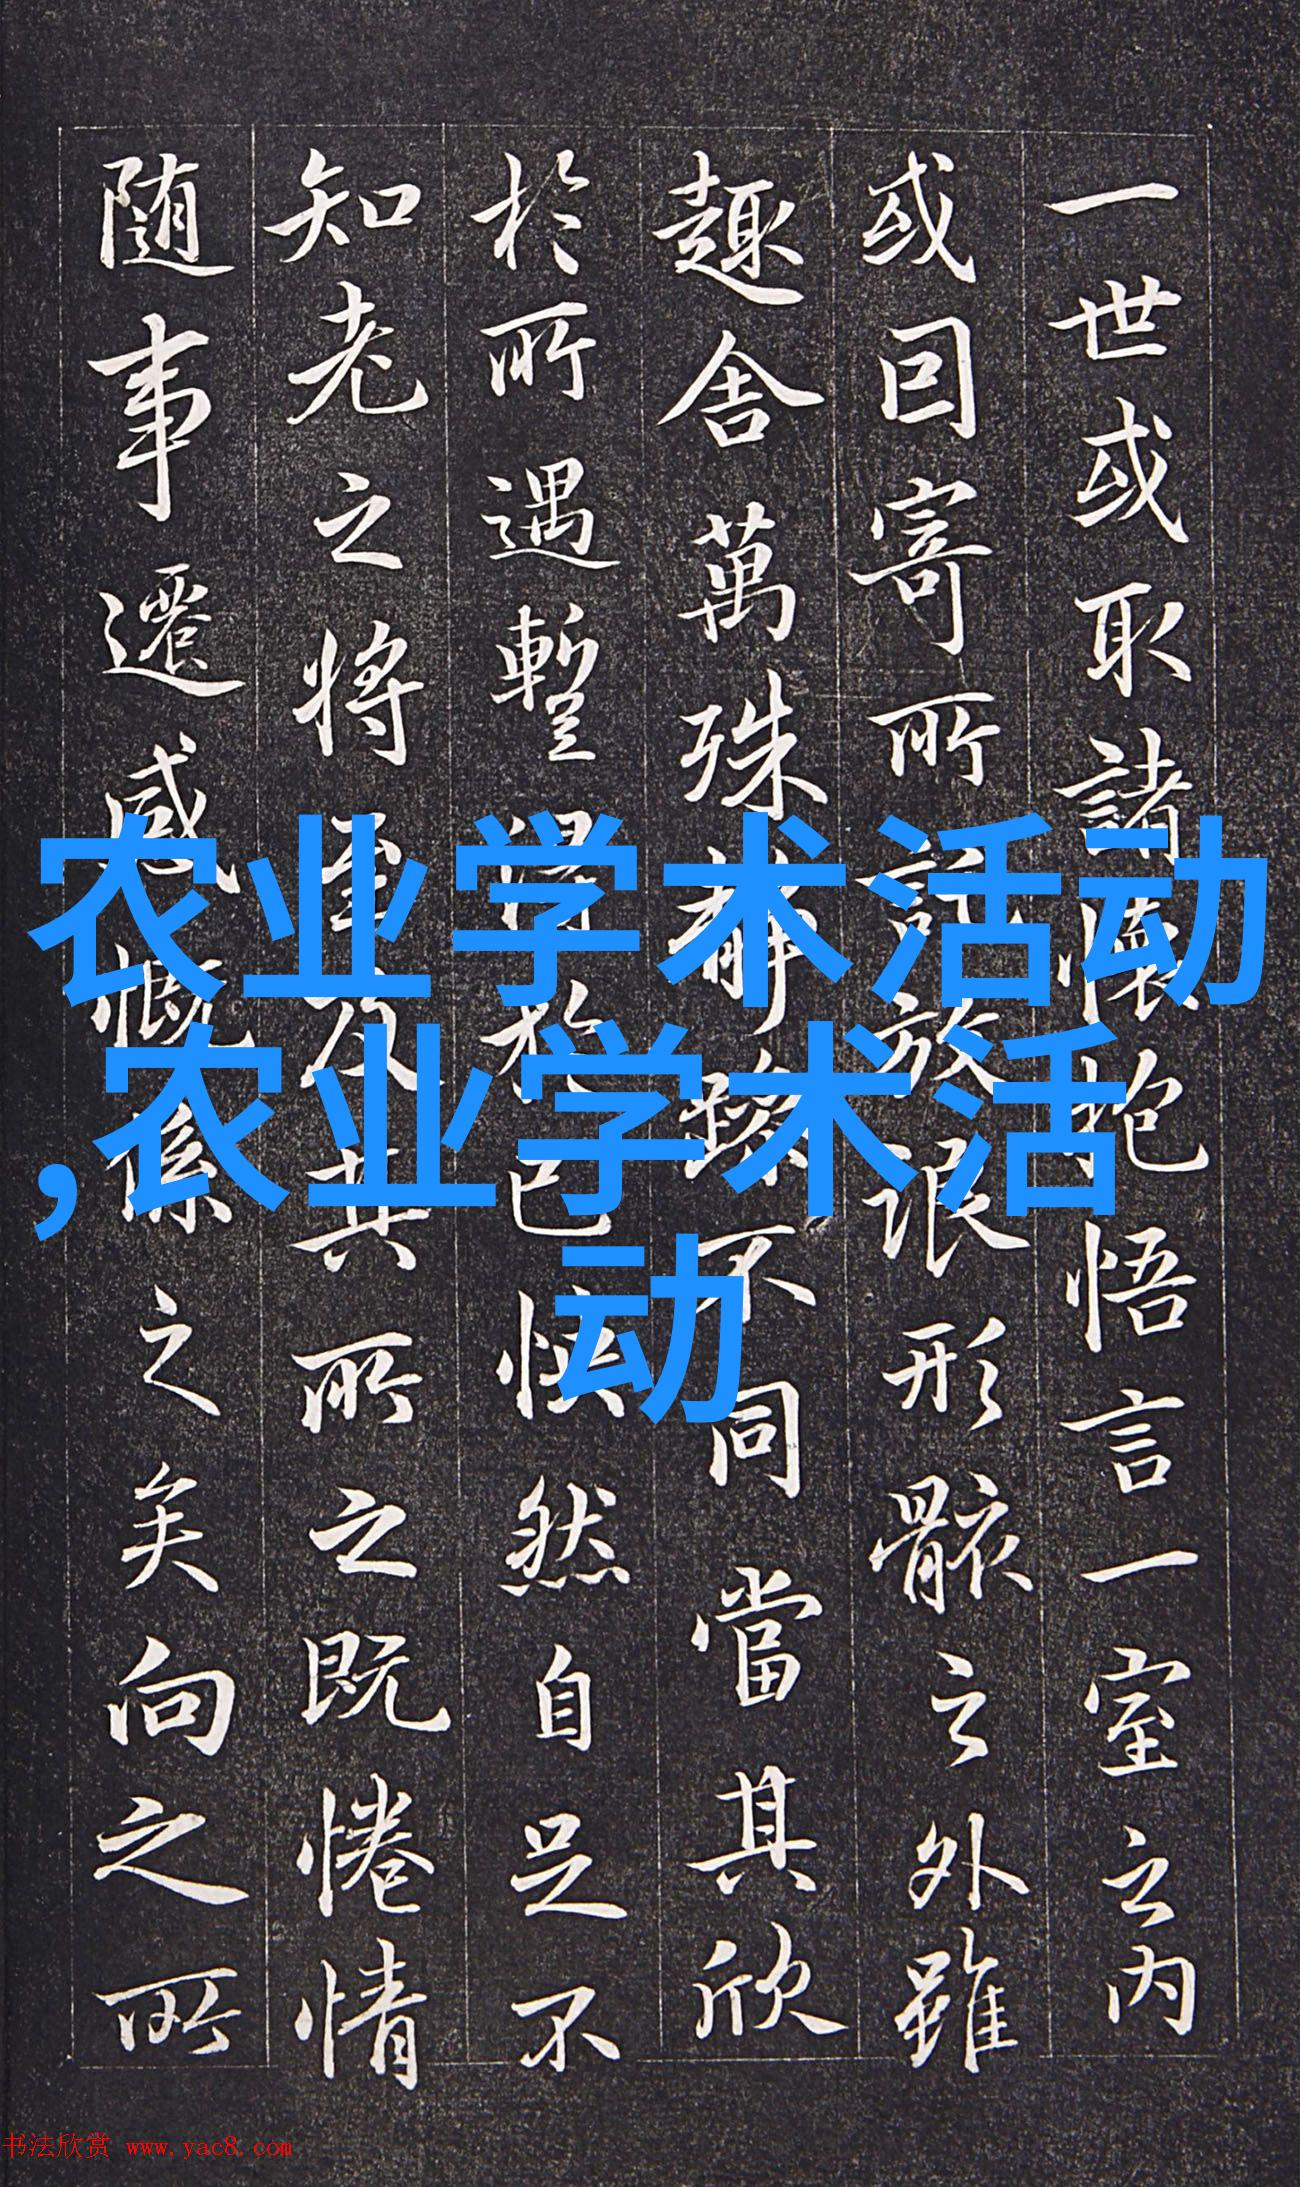 一世或取諸懷抱悟言一室之内
或因寄所託放浪形骸之外雖
趣舍萬殊静躁不同當其欣
於所遇暫得於己快然自足不
知老之将至及其所之既惓情
随事遷感慨係之矣向之所
农业学术活动
,农业学术活
动
书法欣赏 www.yac8.com